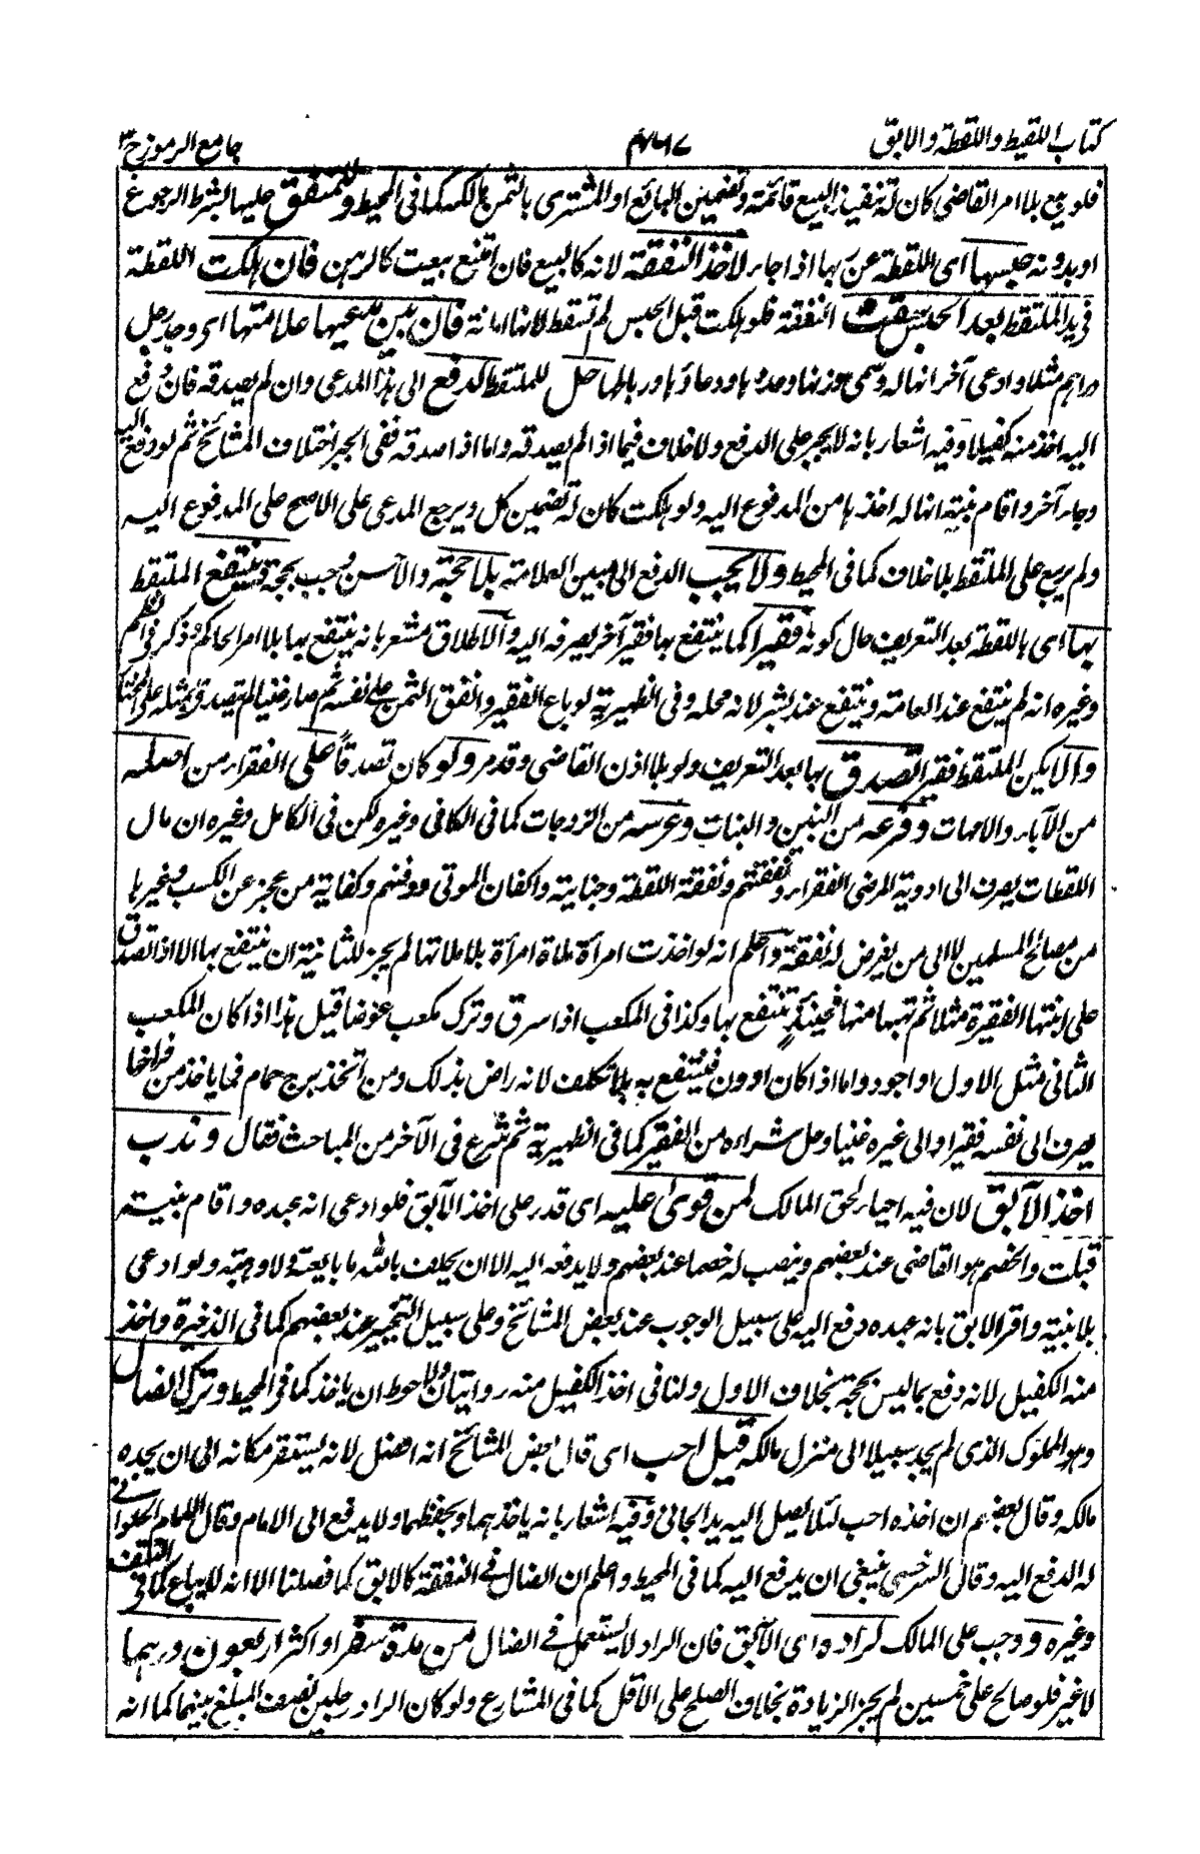 كتاب اللقيط واللقطة والآبق
جامع الرموز ج ٣
فلو بيع بلا امر القاضى كان له تنفيذ البيع قائمة وتضمين البائع او المشترى بالثمن هالكة كما فى المحيط وللمنفق عليها بشرط الرجوع
او بدونه حبسها اى اللقطة عن ربها اذا جاء لاخذ النفقة لانه كالبيع فان امتنع بيعت كالرهن فان هلكت اللقطة
فى يد الملتقط بعد الحبس سقطت النفقة فلو هلكت قبل الحبس لم تسقط لانها امانة فان بين مدعيها علامتها اى وجد رجل
دراهم مثلا وادعى آخر انها له وسمى وزنها وعددها ووعاءها ورباطها حل للملتقط الدفع الى هذا المدعى وان لم يصدقه فان دفع
اليه اخذ منه كفيلا وفيه اشعار بانه لا يجبر على الدفع ولا خلاف فيما اذا لم يصدقه واما اذا صدقه ففى الجبر اختلاف المشائخ ثم لو دفع اليه
وجاء آخر واقام بينة انها له اخذها من المدفوع اليه ولو هلكت كان له تضمين كل ويرجع المدعى على الاصح على المدفوع اليه
ولم يرجع على الملتقط بلا خلاف كما فى المحيط ولا يجب الدفع الى مبين العلامة بلا حجة والاحسن وجب بحجة وينتفع الملتقط
بها اى باللقطة بعد التعريف حال كونه فقيرا كما ينتفع بها فقير آخر يصرفه اليه والاطلاق مشعر بانه ينتفع بها بلا امر الحاكم وذكر فى النظم
وغيره انه لم ينتفع عند العامة وينتفع عند بشر لانه محله وفى الظهيرية لو باع الفقير وانفق الثمن على نفسه ثم صار غنيا لم يتصدق بمثله على المختار
والا يكن الملتقط فقيرا تصدق بها بعد التعريف ولو بلا اذن القاضى وقد مر ولو كان تصدقا على الفقراء من اصله
من الآباء والامهات وفرعه من البنين والبنات وعرسه من الزوجات كما فى الكافى وغيره لكن فى الكامل وغيره ان مال
اللقطات يصرف الى ادوية المرضى الفقراء ونفقتهم ونفقة اللقطة وجنايته واكفان الموتى ودفنهم وكفاية من عجز عن الكسب وغيرها
من مصالح المسلمين لا الى من يفرض له نفقة واعلم انه لو اخذت امرأة ملاة امرأة بلا ملاتها لم يجز للثانية ان ينتفع بها الا اذا تصدق
على ابنتها الفقيرة مثلا ثم تهبها منها فحينئذ تنتفع بها وكذا فى المكعب اذا سرق وترك مكعب عوضا قيل هذا اذا كان المكعب
الثانى مثل الاول او اجود واما اذا كان ادون فينتفع به بلا تكلف لانه راض بذلك ومن اتخذ برج حمام فما ياخذ من فراخها
يصرف الى نفسه فقيرا والى غيره غنيا وحل شراءه من الفقير كما فى الظهيرية ثم شرع فى الآخر من المباحث فقال وندب
اخذ الآبق لان فيه احياء لحق المالك لمن قوى عليه اى قدر على اخذ الآبق فلو ادعى انه عبده واقام بينة
قبلت والخصم هو القاضى عند بعضهم وينصب له خصما عند بعضهم ولا يدفعه اليه الا ان يحلف بالله ما بايعته ولا وهبته ولو ادعى
بلا بينة واقر الابق بانه عبده دفع اليه على سبيل الوجوب عند بعض المشائخ وعلى سبيل التخيير عند بعضهم كما فى الذخيرة واخذ
منه الكفيل لانه دفع بما ليس بحجة بخلاف الاول ولنا فى اخذ الكفيل منه روايتان والاحوط ان ياخذ كما فى المحيط وترك الضال
وهو المملوك الذى لم يجد سبيلا الى منزل مالكه قيل احب اى قال بعض المشائخ انه افضل لانه يستقر مكانه الى ان يجده
مالكه وقال بعضهم ان اخذه احب لئلا يصل اليه يد الجانى وفيه اشعار بانه ياخذهما ويحفظهما ولا يدفع الى الامام وقال الامام الحلوانى
له الدفع اليه وقال السرخسى ينبغى ان يدفع اليه كما فى المحيط واعلم ان الضال فى النفقة كالابق كما فصلنا الا انه لا يباع كما فى النتف
وغيره ووجب على المالك لراده اى الآبق فان الراد لا يستعمل فى الضال من مدة سفر او اكثر اربعون درهما
لا غير فلو صالح على خمسين لم يجز الزيادة بخلاف الصلح على الاقل كما فى المشارع ولو كان الراد رجلين نصف المبلغ بينهما كما انه